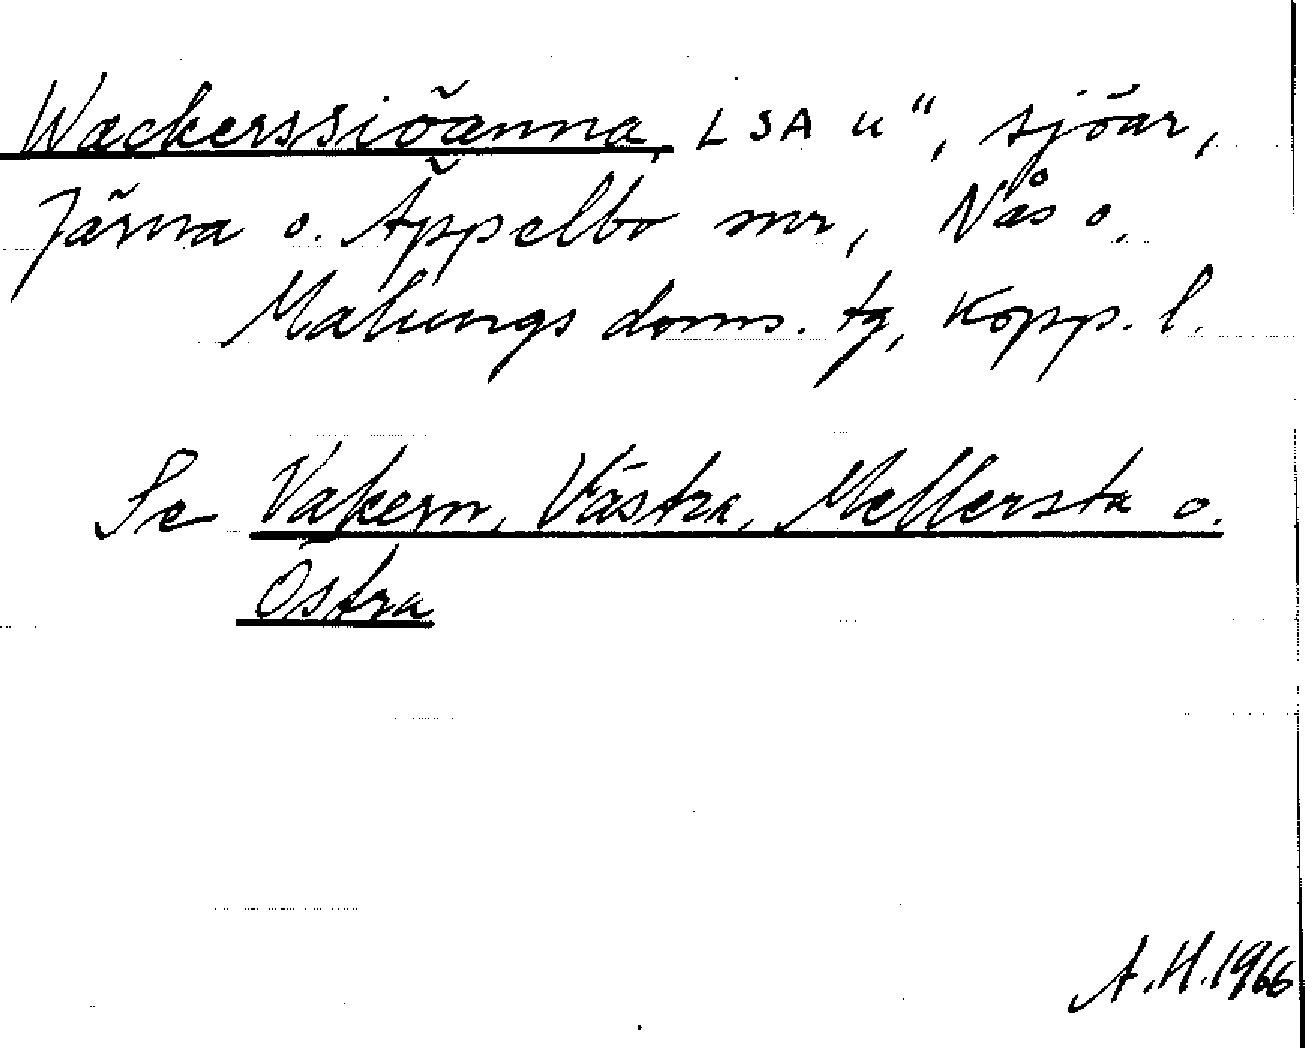 Wackerssiöänna, LSA u", sjöar,
Järna o. Äppelbo snr, Nås o.
Malungs doms. tg, Kopp. l.
Se Vakern, Västra, Mellersta o.
Östra
A.H. 1966